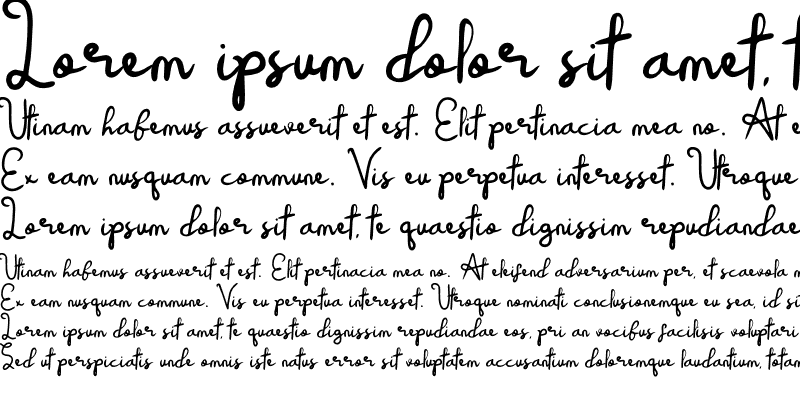 Lorem ipsum dolor sit amet,
Utinam habemus assueverit et est. Elit pertinacia mea no. At
Ex eam nusquam commune. Vis eu perpetua interesset. Utroque
Lorem ipsum dolor sit amet, te quaestio dignissim repudiandae
Utinam habemus assueverit et est. Elit pertinacia mea no. At eleifend adversarium per, et scaevola
Ex eam nusquam commune. Vis eu perpetua interesset. Utroque nominati conclusionemque eu sea, id
Lorem ipsum dolor sit amet, te quaestio dignissim repudiandae eos, pri an vocibus facilisis voluptari
Sed ut perspiciatis unde omnis iste natus error sit voluptatem accusantium doloremque laudantium, totam